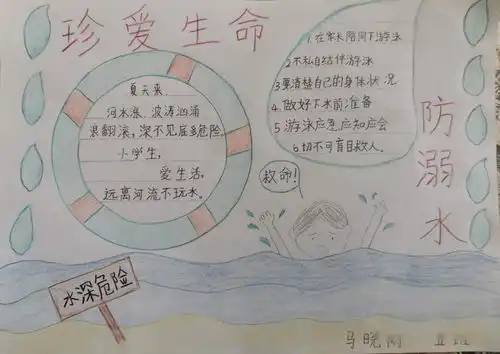 珍爱生命
夏天来,
河水涨、波涛汹涌
浪翻滚,深不见底多危险.
小学生,
爱生活,
远离河流不玩水。
1.在家长陪同下游泳
2.不私自结伴游泳
3要清楚自己的身体状况
4.做好下水前准备
5.游泳应急应知应会
6切不可盲目救人。
防溺水
救命!
水深危险
马晓 五班